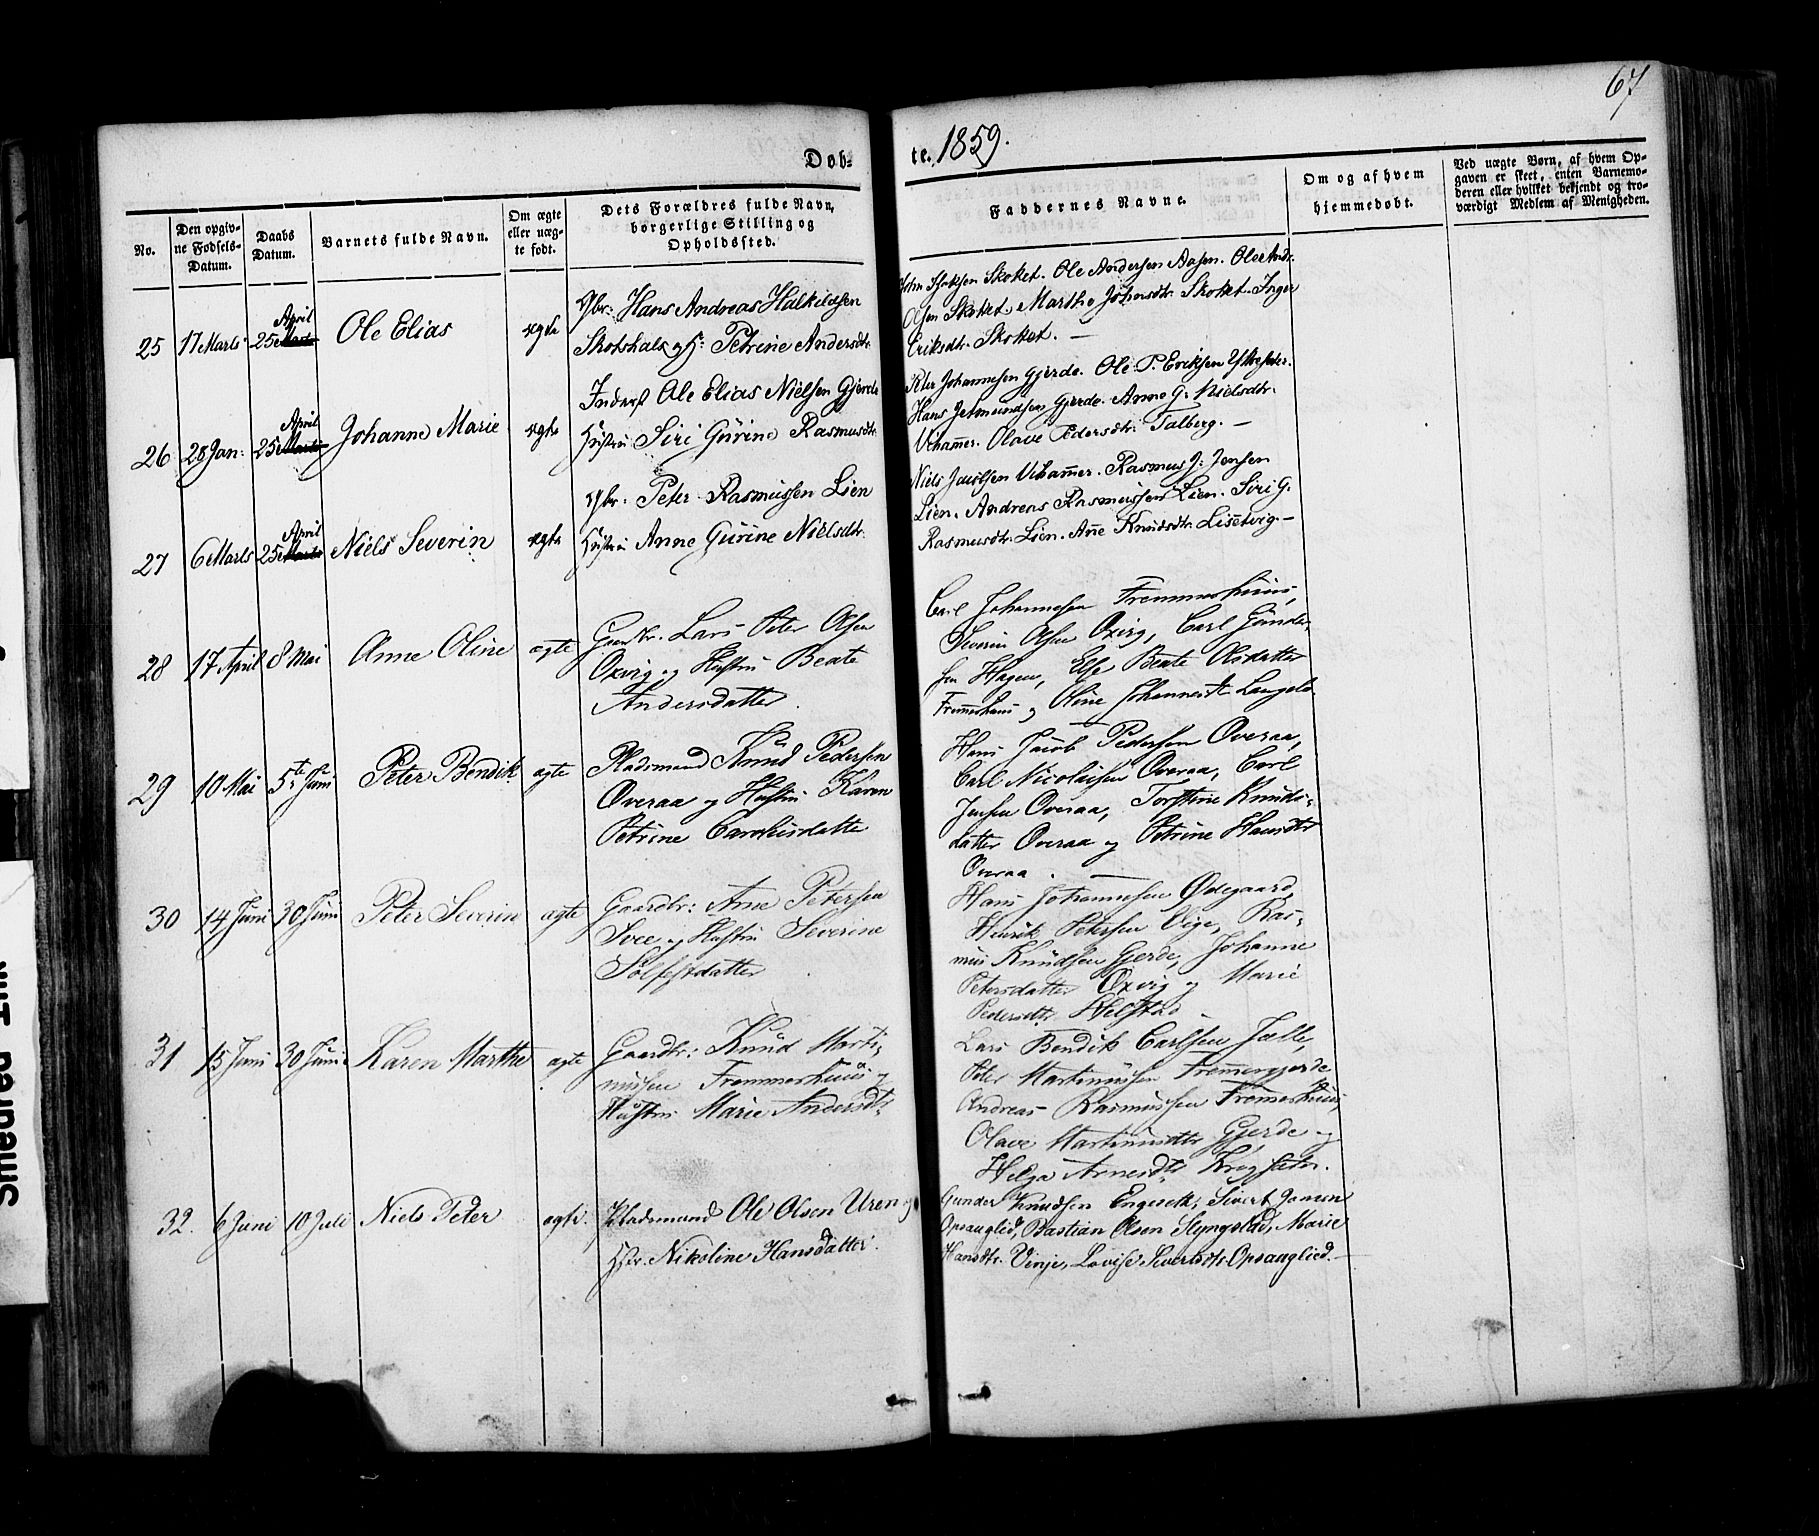 67
Døb-
te. 1859.
No.
Den opgiv-
ne Fødsels-
Datum.
Daabs
Datum.
Barnets fulde Navn.
Om ægte
eller uæg-
te født.
Dets Forældres fulde Navn,
borgerlige Stilling og
Opholdssted.
Faddernes Navne.
Om og af hvem
hjemmedøbt.
Ved uægte Børn, af hvem Op-
gaven er skeet, enten Barnemo-
deren eller hvilket bekjendt og tro-
værdigt Medlem af Menigheden.
25 17 Marts 25 Marts April Ole Elias ægte
Gbr: Hans Andreas Halkildsen
Skotshals og H: Petrine Andersdtr.
Skotket. Ole Andersen Aasen. Ole Andr.
Olsen Skotket. Marthe Johnsdtr. Skotket. Inger
Eriksdtr. Skotket. —
26 28 Jan: 25 Marts April Johanne Marie ægte
Inderst Ole Elias Nielsen Gjerde
Hustru Siri Gurine Rasmusdtr.
Peter Johannesen Gjerde. Ole P. Eriksen
Hans Jetmundsen Gjerde. Anne G. Nielsdtr.
Uhammer. Olave Pedersdtr. Talberg. —
27 6 Marts 25 Marts April Niels Severin ægte
Gbr. Peter Rasmussen Lien
Hustru Anne Gurine Nielsdtr.
Niels Jacobsen Uhammer. Rasmus J. Jensen
Lien. Andreas Rasmussen Lien. Siri G.
Rasmusdtr. Lien. Anne Knudsdtr. Lisetvig. —
28 17 April 8 Mai Anne Oline ægte
Gaardbr. Lars Peter Olsen
Oxvig og Hustru Beate
Andersdatter.
Carl Johannesen Fremmerhuus,
Severin Olsen Oxvig, Carl Gunder-
sen Hagen, Else Beate Olsdatter
Fremmerhuus og Oline Johannesdtr Langeland
29 10 Mai 5te Juni Peter Bendik ægte
Pladsmand Knud Pedersen
Overaa og Hustru Karen
Petrine
Hans Jacob Pedersen Overaa,
Carl Nicolaisen Overaa, Carl
Jensen Overaa, Torstine Knuds-
datter Overaa og Petrine Hansdtr
Overaa. —
30 14 Juni 30 Juni Peter Severin ægte
Gaardbr: Arne Petersen
Svee og Hustru Severine
Sølfestdatter
Hans Johannesen Ødegaard,
Henrik Petersen Vige, Ras-
mus Knudsen Gjerde, Johanne
Petersdatter Oxvig og Marie
Pedersdtr. Helstad. —
31 15 Juni 30 Juni Karen Marthe ægte
Gaardbr: Knud Marti-
nussen Fremmerhuus og
Hustru Marie Andersdtr.
Lars Bendik Carlsen
Peter Martinussen Fremergjerde
Andreas Rasmussen Fremerhuus,
Olave Martinusdtr Gjerde og
Helga Arnesdtr
32. 6 Juni 10 Juli Niels Peter ægte.
Pladsmand Ole Olsen Uren og
Hstr. Nikoline Hansdatter.
Gunder Knudsen Engeset, Sivert Jansen
Opsanglied, Bastian Olsen Slyngstad, Marie
Hansdtr. Vinje, Lovise Sivertsdtr. Opsanglied. —